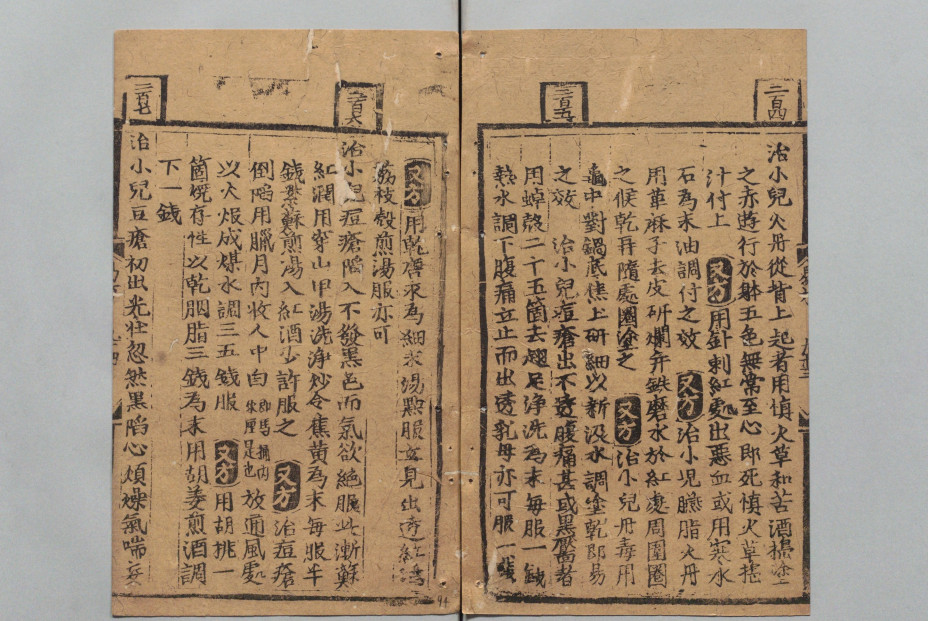 二百四
治小兒火丹從背上起者用慎火草和苦酒搗塗
之赤遊行於躰五色無常至心即死慎火草搗
汁付上 又方 用針刺紅處出惡血或用寒水
石為末油調付之效 又方 治小児臙脂火丹
用萆麻子去皮研爛并鉄磨水於紅邊周圍圈
之候乾再隨處圈塗之 又方 治小兒丹毒用
竈中對鍋底焦土研細以新汲水調塗乾即易
二百五
之效 治小兒痘瘡出不透腹痛甚或黒靨者
用蟬殼二十五箇去翅足浄洗為末每服一錢
熱水調下腹痛立止而出透乳母亦可服一錢
又方 用乾 為細末湯㸃服 見出透紅
荔枝殼煎湯服亦可
二百六
治小児痘瘡陷入不發黒色而氣欲絕服此漸蘇
紅潤用穿山甲湯洗浄炒令焦黄為末每服半
錢紫蘇煎湯入紅酒少許服之 又方 治痘瘡
倒陷用臘月内收人中白 即馬桶内垽是也 放通風處
以火煅成煤水調三五錢服 又方 用胡桃一
箇燒存性以乾胭脂三錢為末用胡荽煎酒調
下一錢
二百七
治小兒豆瘡初出光壮忽然黒陷心煩燥氣喘妄
94